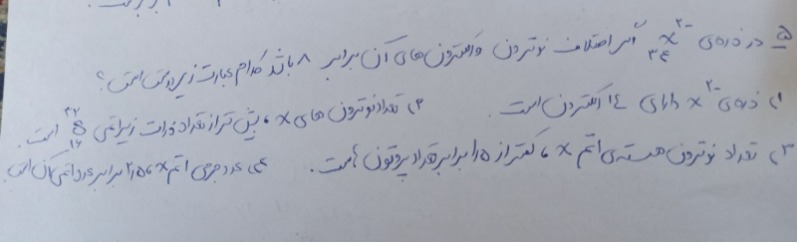 ۵ در ذره‌ی ₃₄X²⁻ اگر اختلاف نوترون و الکترون‌های آن برابر ۸ باشد کدام عبارت زیر درست است؟
۱) ذره‌ی X²⁻ دارای ٤١ الکترون است. ۲) تعداد نوترون های X، بیش تر از تعداد ذرات زیراتمی ³²₁₆S است.
۳) تعداد نوترون هسته‌ی اتم X، کمتر از ۱٫۵ برابر تعداد پروتون است. ۴) عدد جرمی اتم X، ۲٫۵ برابر عدد اتمی آن است.